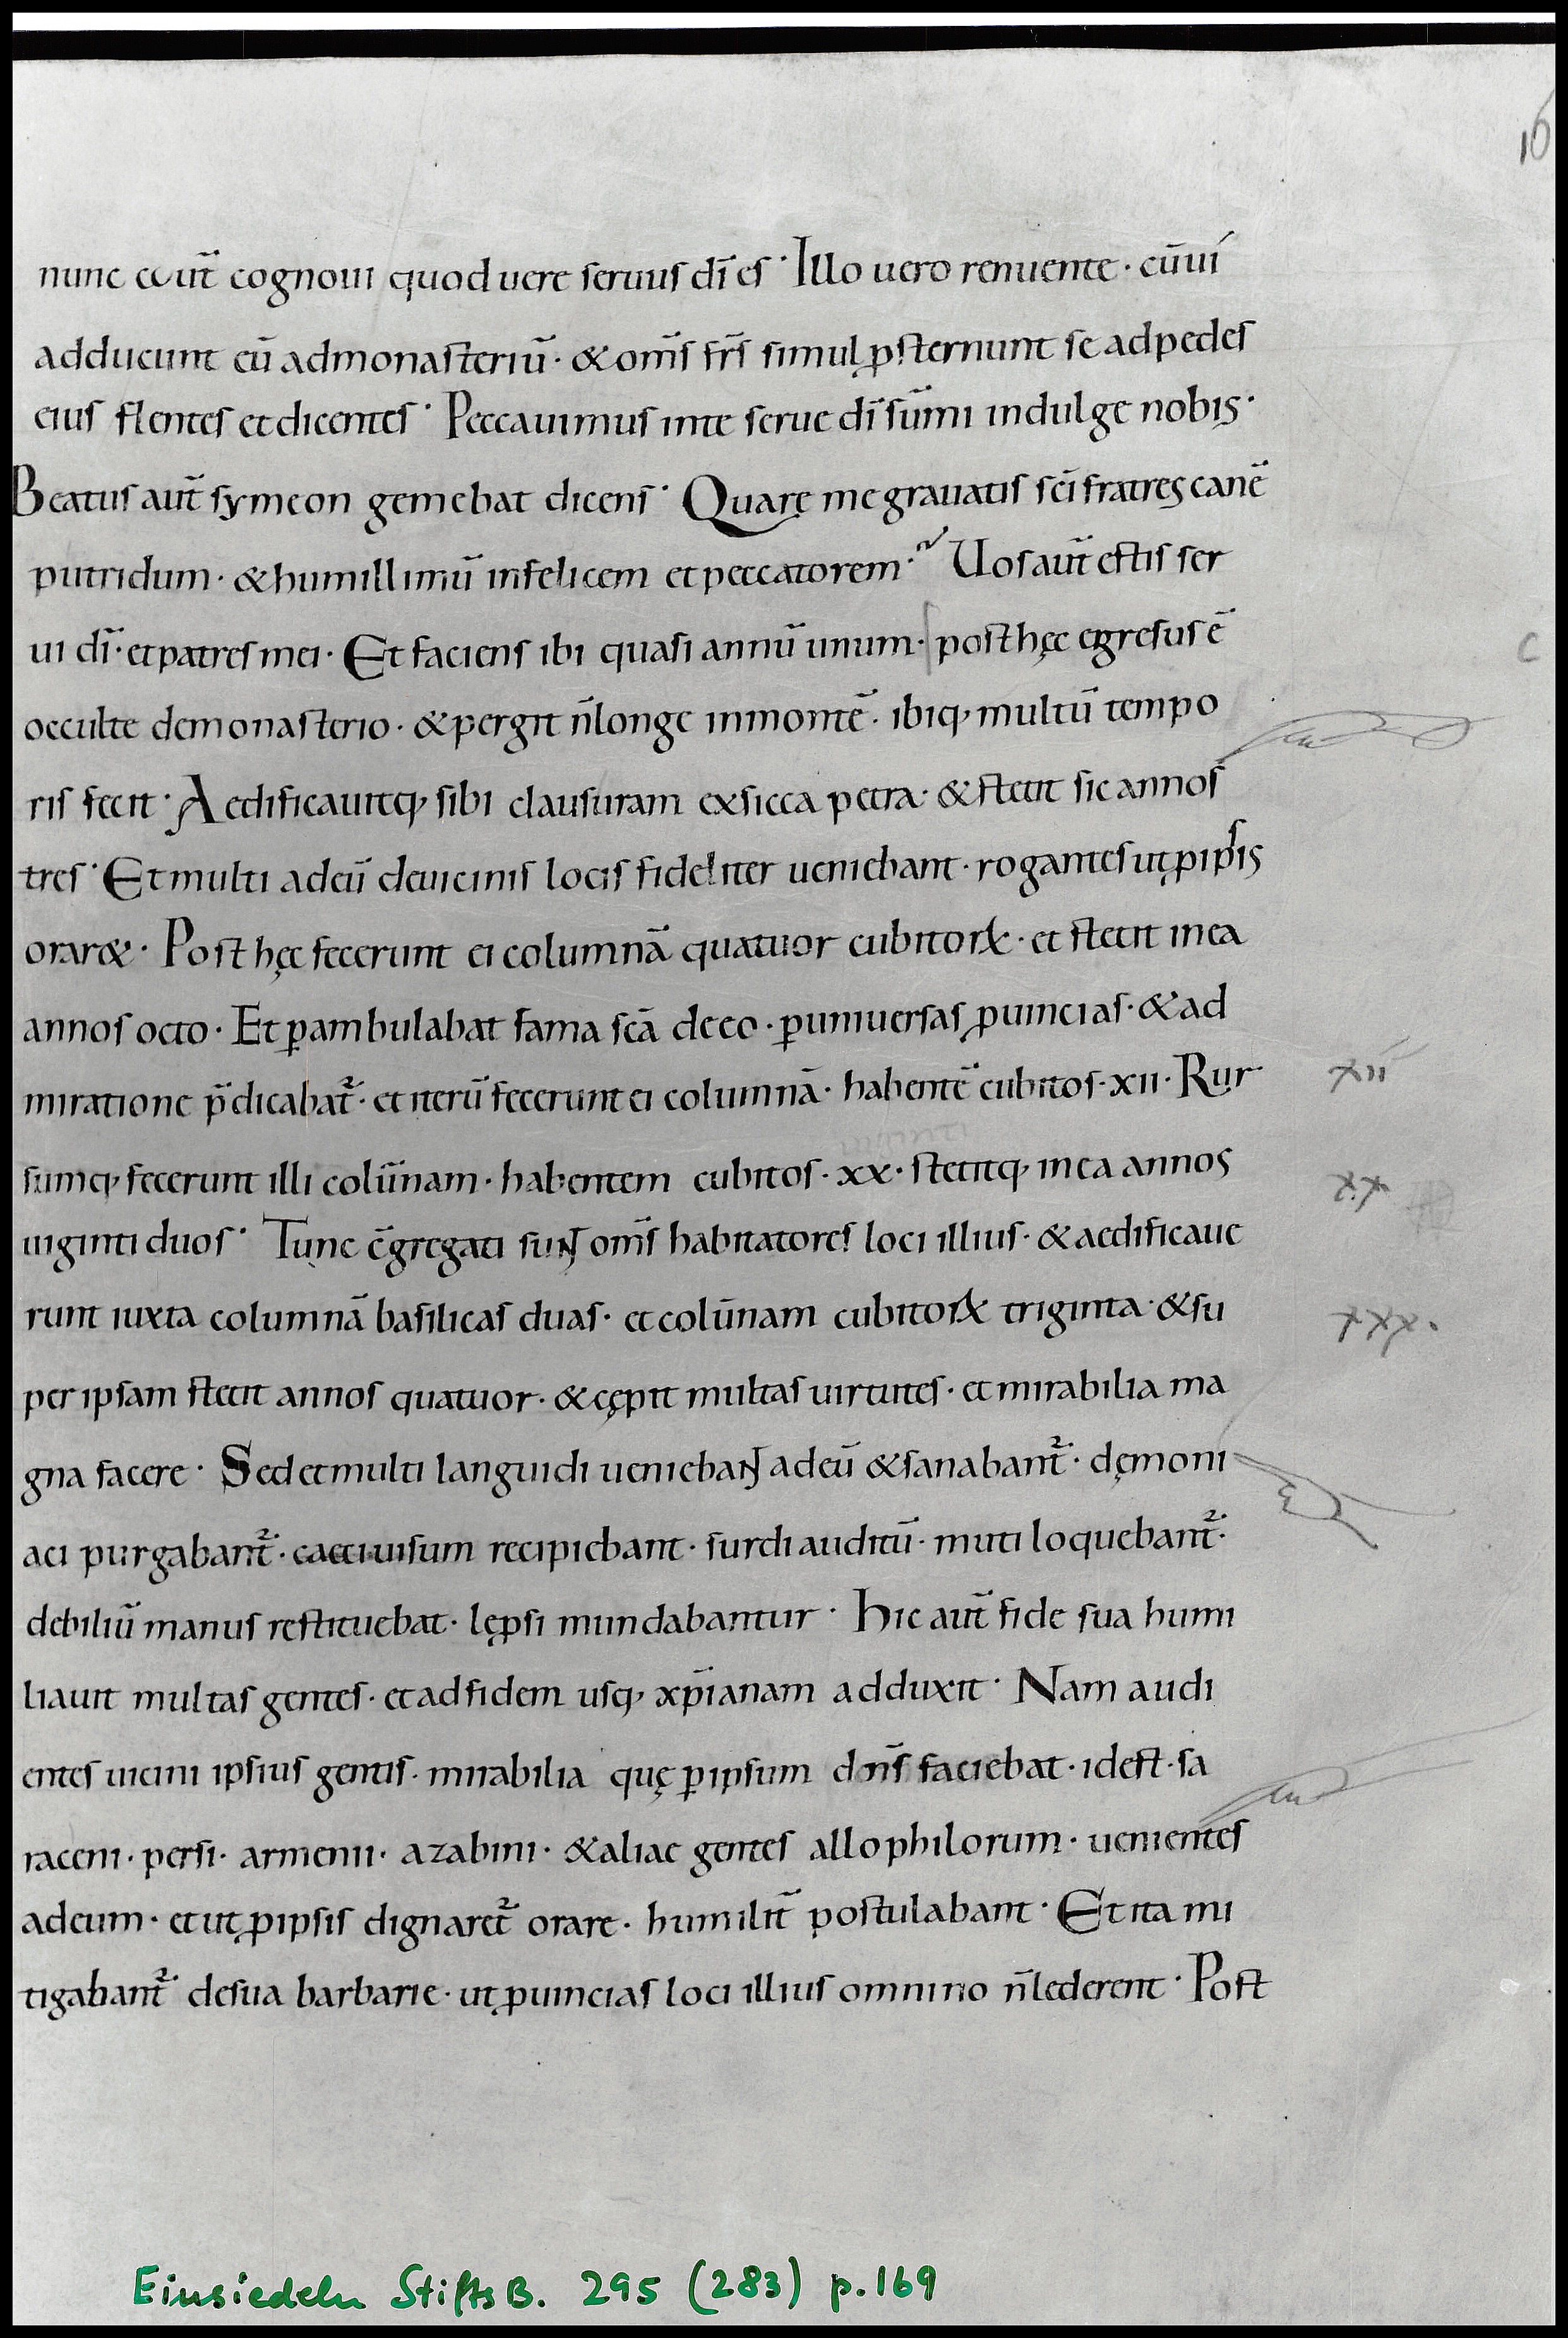 16
nunc aut̄ cognoui quod uere seruus dī es · Illo uero renuente · cū ui
adducunt eū admonasteriū · & om̄s fr̄s simul ꝓsternunt se adpedes
eius flentes et dicentes · Peccauimus inte serue dī sūmi indulge nobis ·
Beatus aut̄ symeon gemebat dicens · Quare me grauatis sc̄i fratres canē
putridum · & humillimū infelicem et peccatorem · Uos aut̄ estis ser
ui dī · et patres mei · Et faciens ibi quasi annū unum · post hęc egresus ē
occulte demonasterio · & pergit n̄ longe inmontē · ibiq, multū tempo
ris fecit · Aedificauitq, sibi clausuram exsicca petra · & stetit sic annos
tres · Et multi adeū deuicinis locis fideliter ueniebant · rogantes ut ꝓ ipsis
orar& · Post hęc fecerunt ei columnā quatuor cubitoꝝ · et stetit inea
annos octo · Et ꝑambulabat fama scā deeo · ꝑ uniuersas ꝓuincias · & ad
miratione p̄dicabat̄ᷣ · et iterū fecerunt ei columnā · habentē cubitos · xii · Rur
xii
sumq, fecerunt illi colūnam · habentem cubitos · xx · stetitq, inea annos
xx
uiginti duos · Tunc c̄gregati sunt om̄s habitatores loci illius · & aedificaue
runt iuxta columnā basilicas duas · et colūnam cubitoꝝ triginta · & su
xxx.
per ipsam stetit annos quatuor · & cępit multas uirtutes · et mirabilia ma
gna facere · Sed et multi languidi ueniebant adeū & sanabant̄ᷣ · dęmoni
aci purgabant̄ᷣ · caeci uisum recipiebant · surdi auditū · muti loquebant̄ᷣ ·
debiliū manus restituebat · lępsi mundabantur · Hic aut̄ fide sua humi
liauit multas gentes · et adfidem usq, xp̄ianam adduxit · Nam audi
entes uicini ipsius gentis · mirabilia quę ꝑ ipsum dn̄s faciebat · idest · sa
raceni · persi · armenii · azabini · & aliae gentes allophilorum · uenientes
adeum · et ut ꝓ ipsis dignaret̄ᷣ orare · humilit̄ postulabant · Et ita mi
tigabant̄ᷣ desua barbarie · ut ꝓuincias loci illius omnino n̄ lederent · Post
Einsiedeln StiftsB. 295 (283) p.169